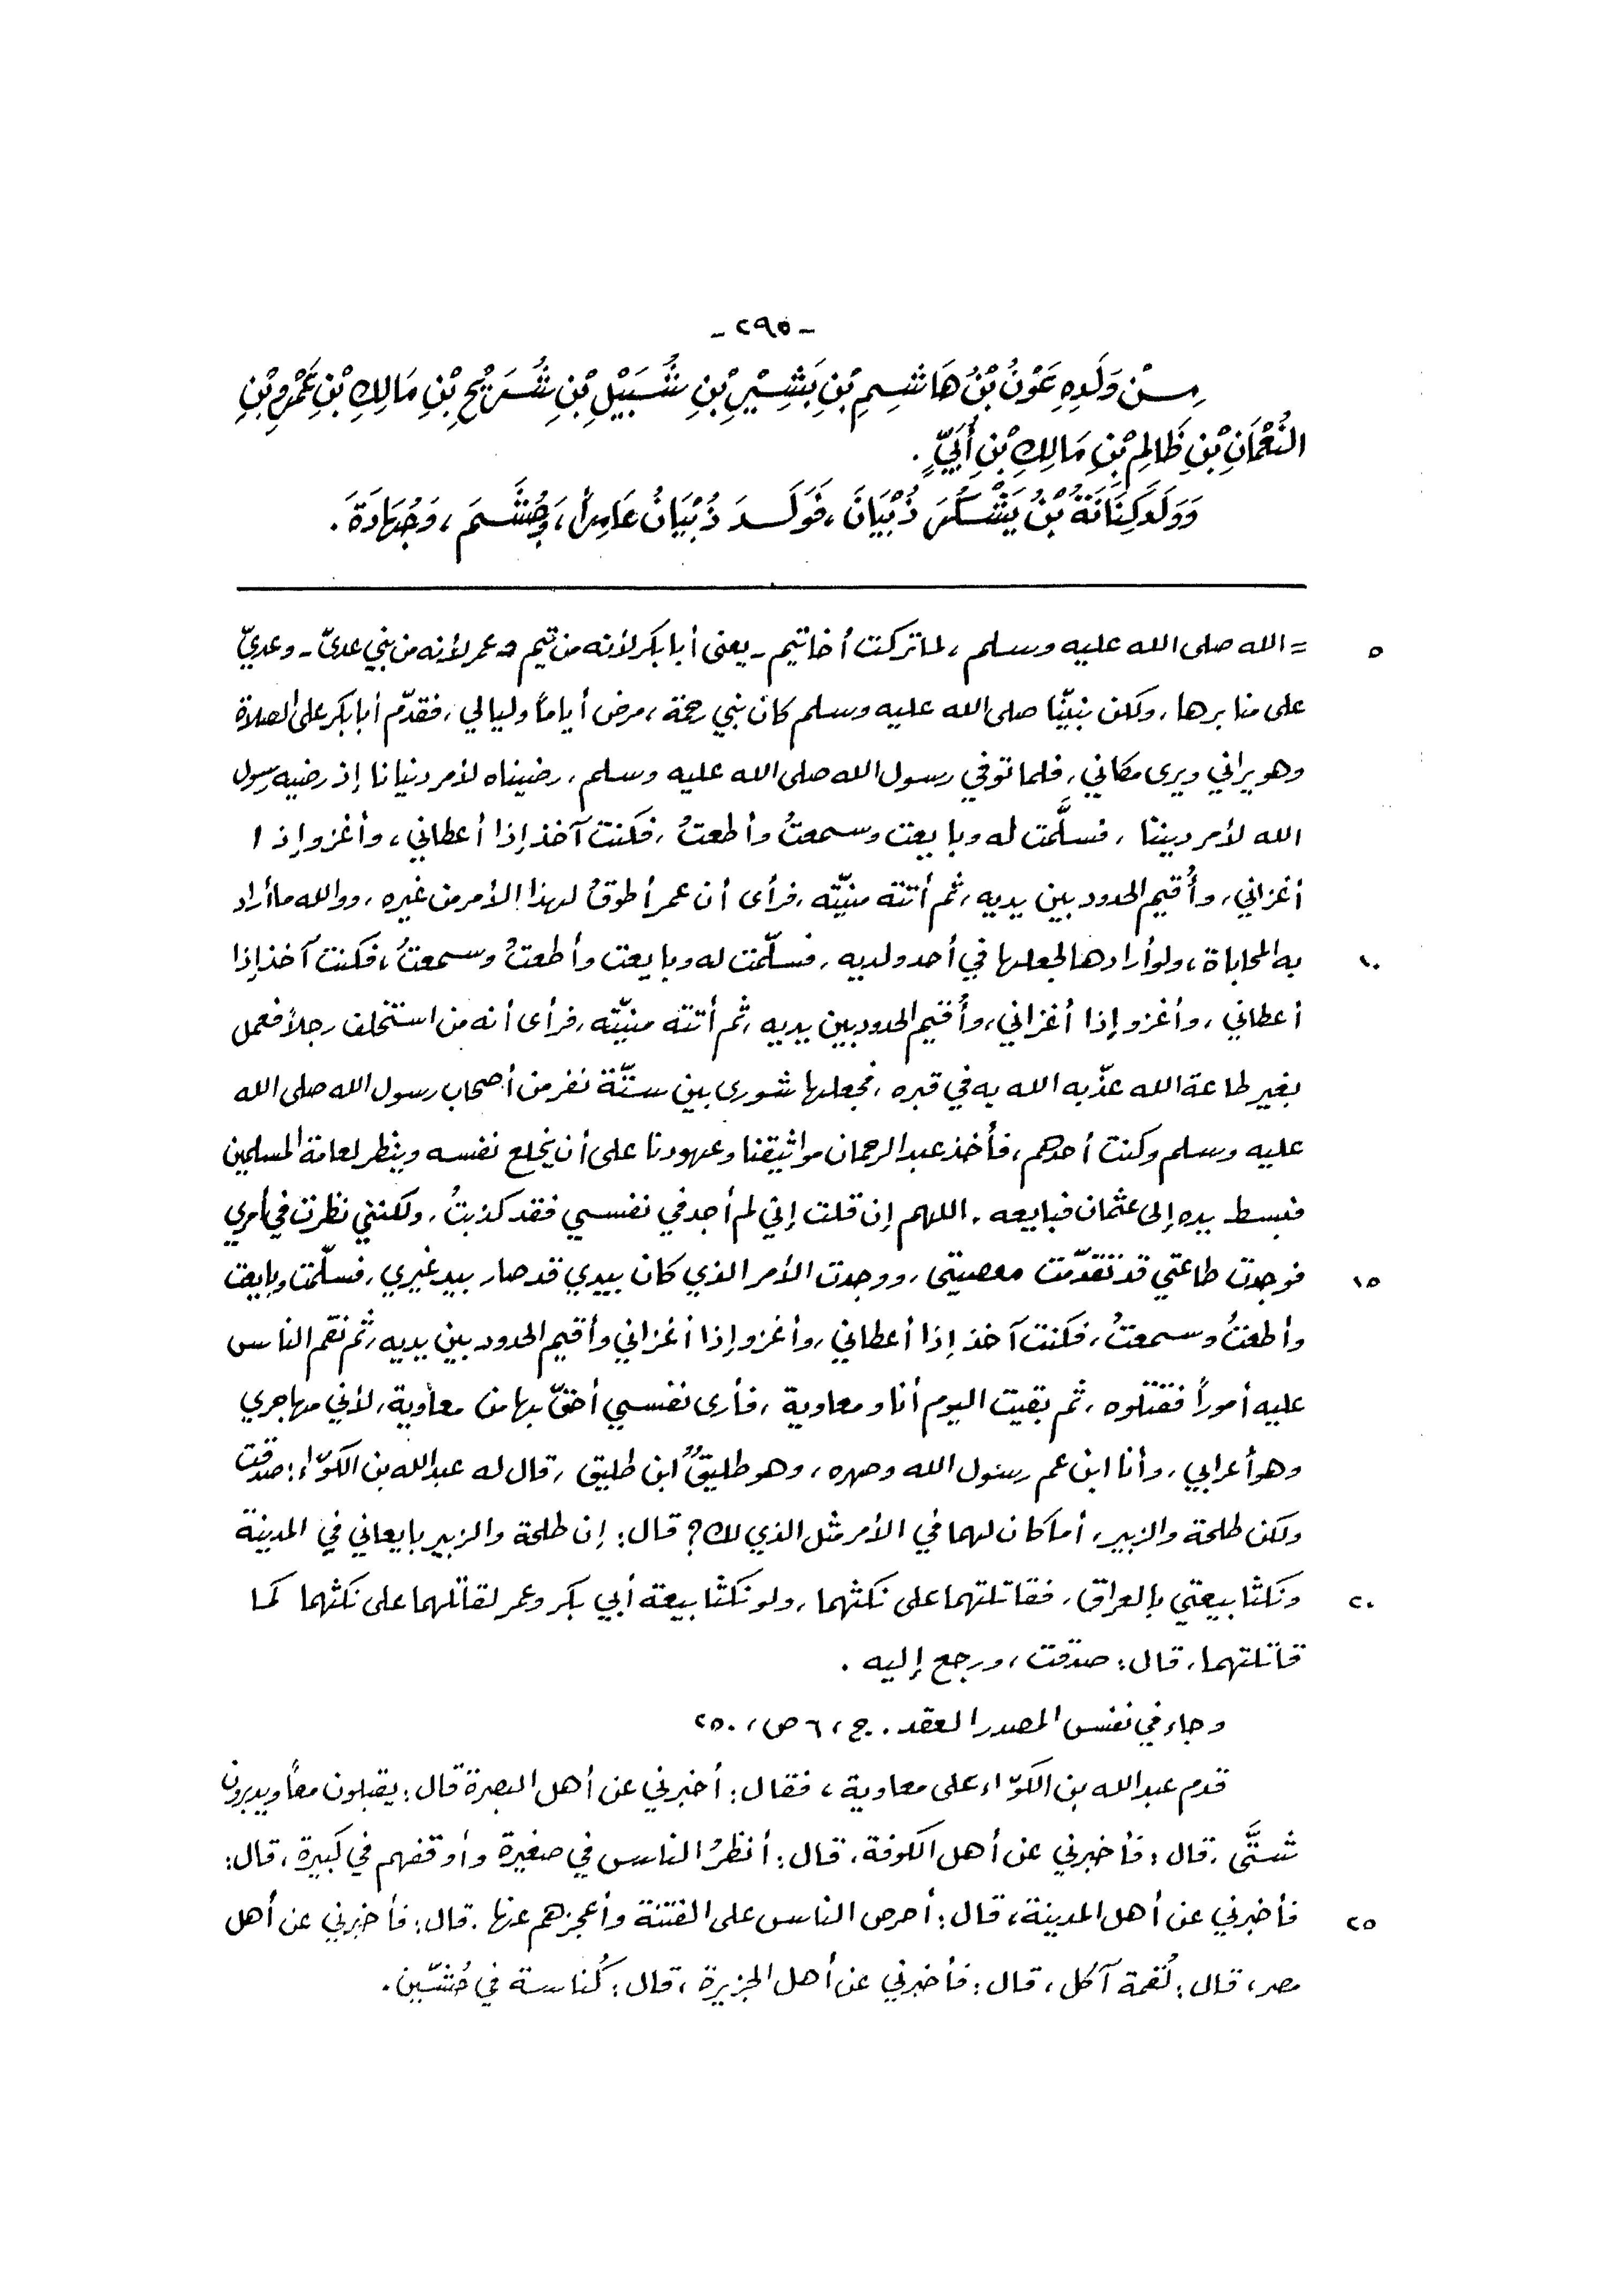 - ٢٩٥ -
مِنْ وَلَدِهِ عَوْنُ بْنُ هَاشِمِ بْنِ بَشِيْرِ بْنِ شُبَيْلِ بْنِ شُرَيْحِ بْنِ مَالِكِ بْنِ عَمْرِو بْنِ
النُّعْمَانِ بْنِ ظَالِمِ بْنِ مَالِكِ بْنِ أُبَيٍّ .
وَوَلَدَ كِنَانَةُ بْنُ يَشْكُرَ ذُبْيَانَ ، فَوَلَدَ ذُبْيَانُ عَامِراً ، وَجُشَمَ ، وَجُهَادَةَ .
٥ = الله صلى الله عليه وسلم ، لما تركت أخا تيم - يعني أبا بكر لأنه من تيم و عمر لأنه من بني عديّ - وعديّ
على منابرها ، ولكن نبيّنا صلى الله عليه وسلم كان نبي رحمة ، مرض أياماً وليالي ، فقدّم أبا بكر على الصلاة
وهو يراني ويرى مكاني ، فلما توفي رسول الله صلى الله عليه وسلم ، رضيناه لأمر دنيانا إذ رضيه رسول
الله لأمر ديننا ، فسلَّمت له وبايعت وسمعتُ وأطعتُ ، فكنت آخذ إذا أعطاني ، وأغزو إذا
أغزاني ، وأُقيم الحدود بين يديه ، ثم أتته منيّته ، فرأى أن عمر أطوقُ لهذا الأمر من غيره ، ووالله ما أراد
١٠ به المحاباة ، ولو أرادها لجعلها في أحد ولديه ، فسلّمت له وبايعت وأطعتُ وسمعتُ ، فكنت آخذ إذا
أعطاني ، وأغزو إذا أغزاني ، وأُقيم الحدود بين يديه ، ثم أتته منيّته ، فرأى أنه من استخلف رجلاً فعمل
بغير طاعة الله عذّبه الله به في قبره ، فجعلها شورى بين ستّة نفر من أصحاب رسول الله صلى الله
عليه وسلم وكنت أحدهم ، فأخذ عبد الرحمان مواثيقنا وعهودنا على أن يخلع نفسه وينظر لعامة المسلمين
فبسط يده إلى عثمان فبايعه ، اللهم إن قلت إني لم أجد في نفسي فقد كذبتُ ، ولكنني نظرت في أمري
١٥ فوجدت طاعتي قد تقدّمت معصيتي ، ووجدت الأمر الذي كان بيدي قد صار بيد غيري ، فسلّمت وبايعت
وأطعتُ وسمعتُ ، فكنت آخذ إذا أعطاني ، وأغزو إذا أغزاني وأقيم الحدود بين يديه ، ثم نقم الناس
عليه أموراً فقتلوه ، ثم بقيت اليوم أنا ومعاوية ، فأرى نفسي أحقّ بها من معاوية ، لأني مهاجري
وهو أعرابي ، وأنا ابن عم رسول الله وصهره ، وهو طليقٌ ابن طليق ، قال له عبد الله بن الكوّاء : صدقت
ولكن طلحة والزبير ، أما كان لهما في الأمر مثل الذي لك ؟ قال : إن طلحة والزبير بايعاني في المدينة
٢٠ ونكثا بيعتي بالعراق ، فقاتلتهما على نكثهما ، ولو نكثا بيعة أبي بكر وعمر لقاتلهما على نكثهما كما
قاتلتهما ، قال : صدقت ، ورجع إليه .
وجاء في نفس المصدر العقد . ج ، ٦ ص ، ٢٥٠
قدم عبد الله بن الكوّاء على معاوية ، فقال : أخبرني عن أهل البصرة قال : يقبلون معاً ويدبرون
شتَّى ، قال : فأخبرني عن أهل الكوفة ، قال : أنظرُ الناس في صغيرة وأوقفهم في كبيرة ، قال :
٢٥ فأخبرني عن أهل المدينة ، قال : أحرص الناس على الفتنة وأعجزهم عنها . قال : فأخبرني عن أهل
مصر ، قال : لُقمة آكل ، قال : فأخبرني عن أهل الجزيرة ، قال : كُناسة في حُشّين .